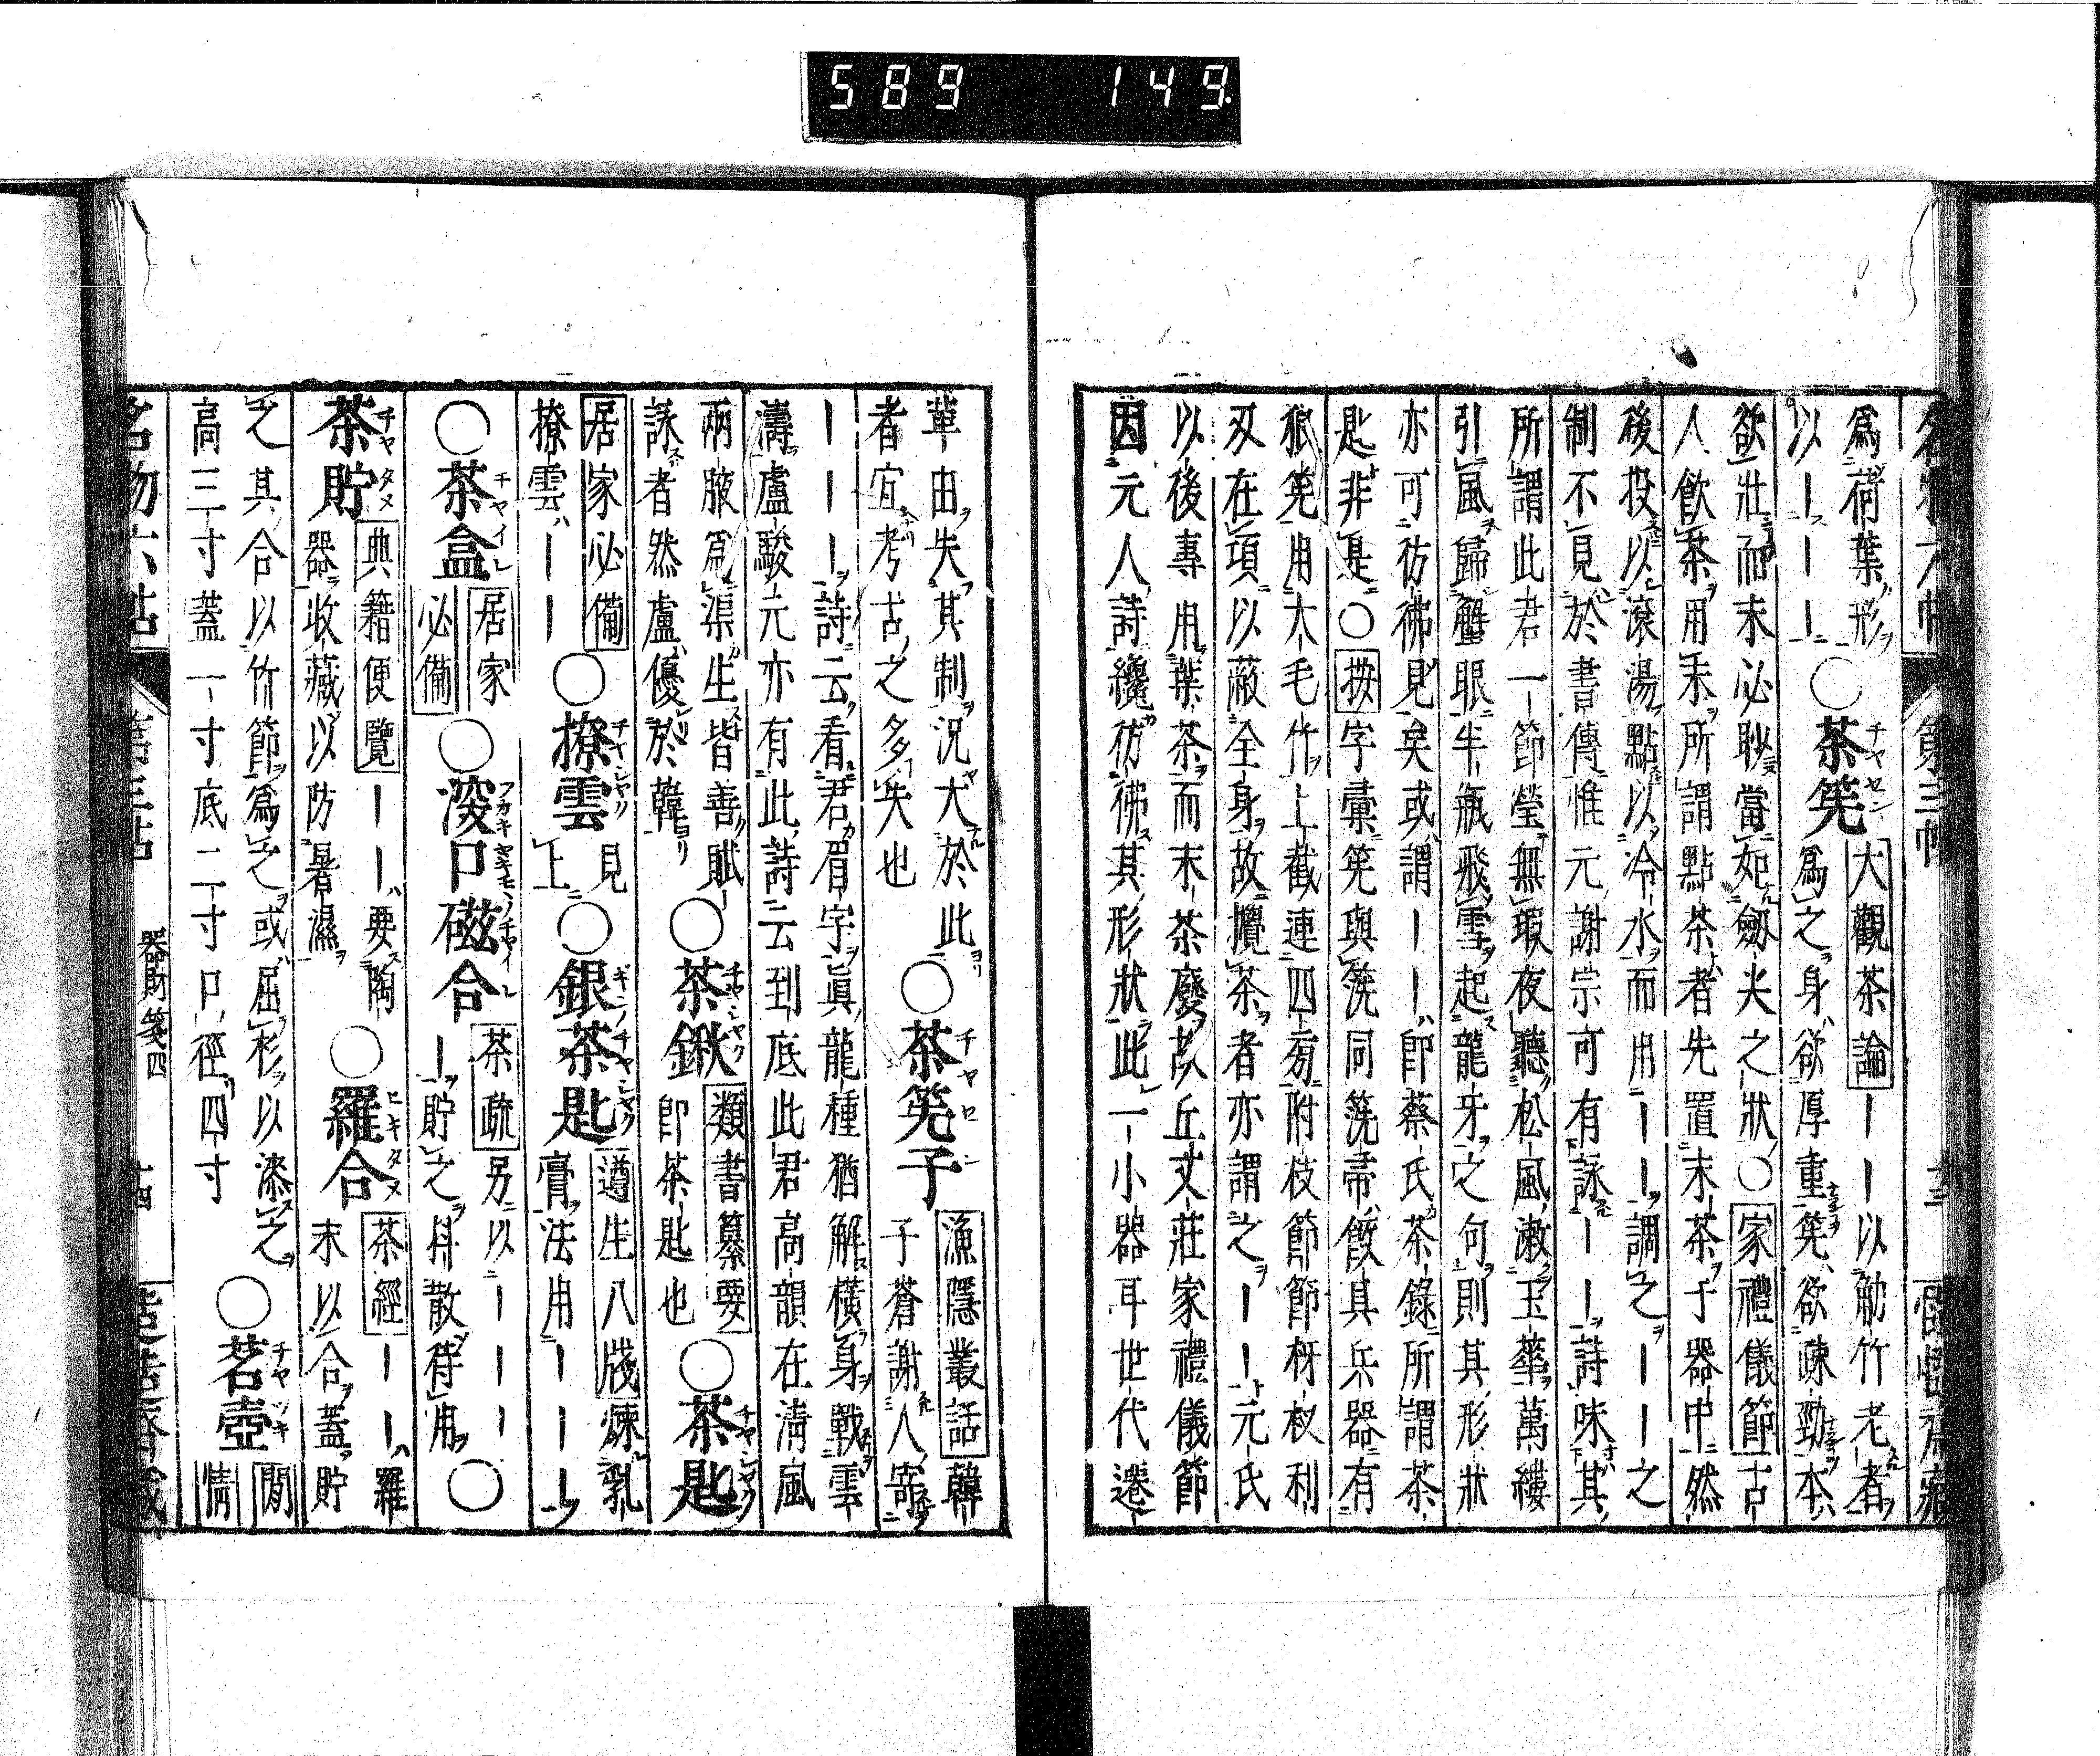 589 149.
名物六帖 第三帖
爲荷葉形
以ーーー〇茶筅 大觀茶論 ーー以觔竹老者
爲之身欲厚重筅欲疎勁本
欲壯而末必眇當如劒夹之狀〇家禮儀節 古
人飮茶用末所謂點茶者先置末茶于器中然
後投以滾湯點以冷水而用ーー調之ーー之
制不見於書傳惟元謝宗可有詠ーー詩味其
所謂此君一節瑩無瑕夜聽松風漱玉華萬縷
引風歸蟹眼半瓶飛雪起龍牙之句則其形狀
亦可彷彿見矣或謂ーー卽蔡氏茶錄所謂茶
匙非是〇按字彙筅與箲同筅帚飮具兵器有
狼筅用大毛竹上截連四旁附枝節節枒杈利
刄在項以蔽全身故攪茶者亦謂之ーー元氏
以後專用葉茶而末茶廢故丘文莊家禮儀節
因元人詩纔彷彿其形狀此一小器耳世代遷
革由失其制況大於此
者宜考古之多失也
〇茶筅子 漁隱叢話 韓
子蒼謝人寄
ーーー詩云看君眉宇眞龍種猶解橫身戰雲
濤盧駿元亦有此詩云到底此君高韻在淸風
兩腋爲渠生皆善賦
詠者然盧優於韓
〇茶鍬 類書纂要
卽茶匙也
〇茶匙
居家必備
撩雲ーー
〇撩雲 見上
〇銀茶匙 遵生八牋 煉乳
膏法用ーーー
〇茶盒 居家必備
〇深口磁合 茶疏 另以ーーー
ー貯之抖散待用〇
茶貯 典籍便覽 ーー要陶
器收藏以防暑濕
〇羅合 茶經 ーー羅
末以合蓋貯
之其合以竹節爲之或屈杉以漆之
高三寸蓋一寸底二寸口徑四寸
〇茗壺 閒情
名物六帖 第三帖 器財箋四 十四